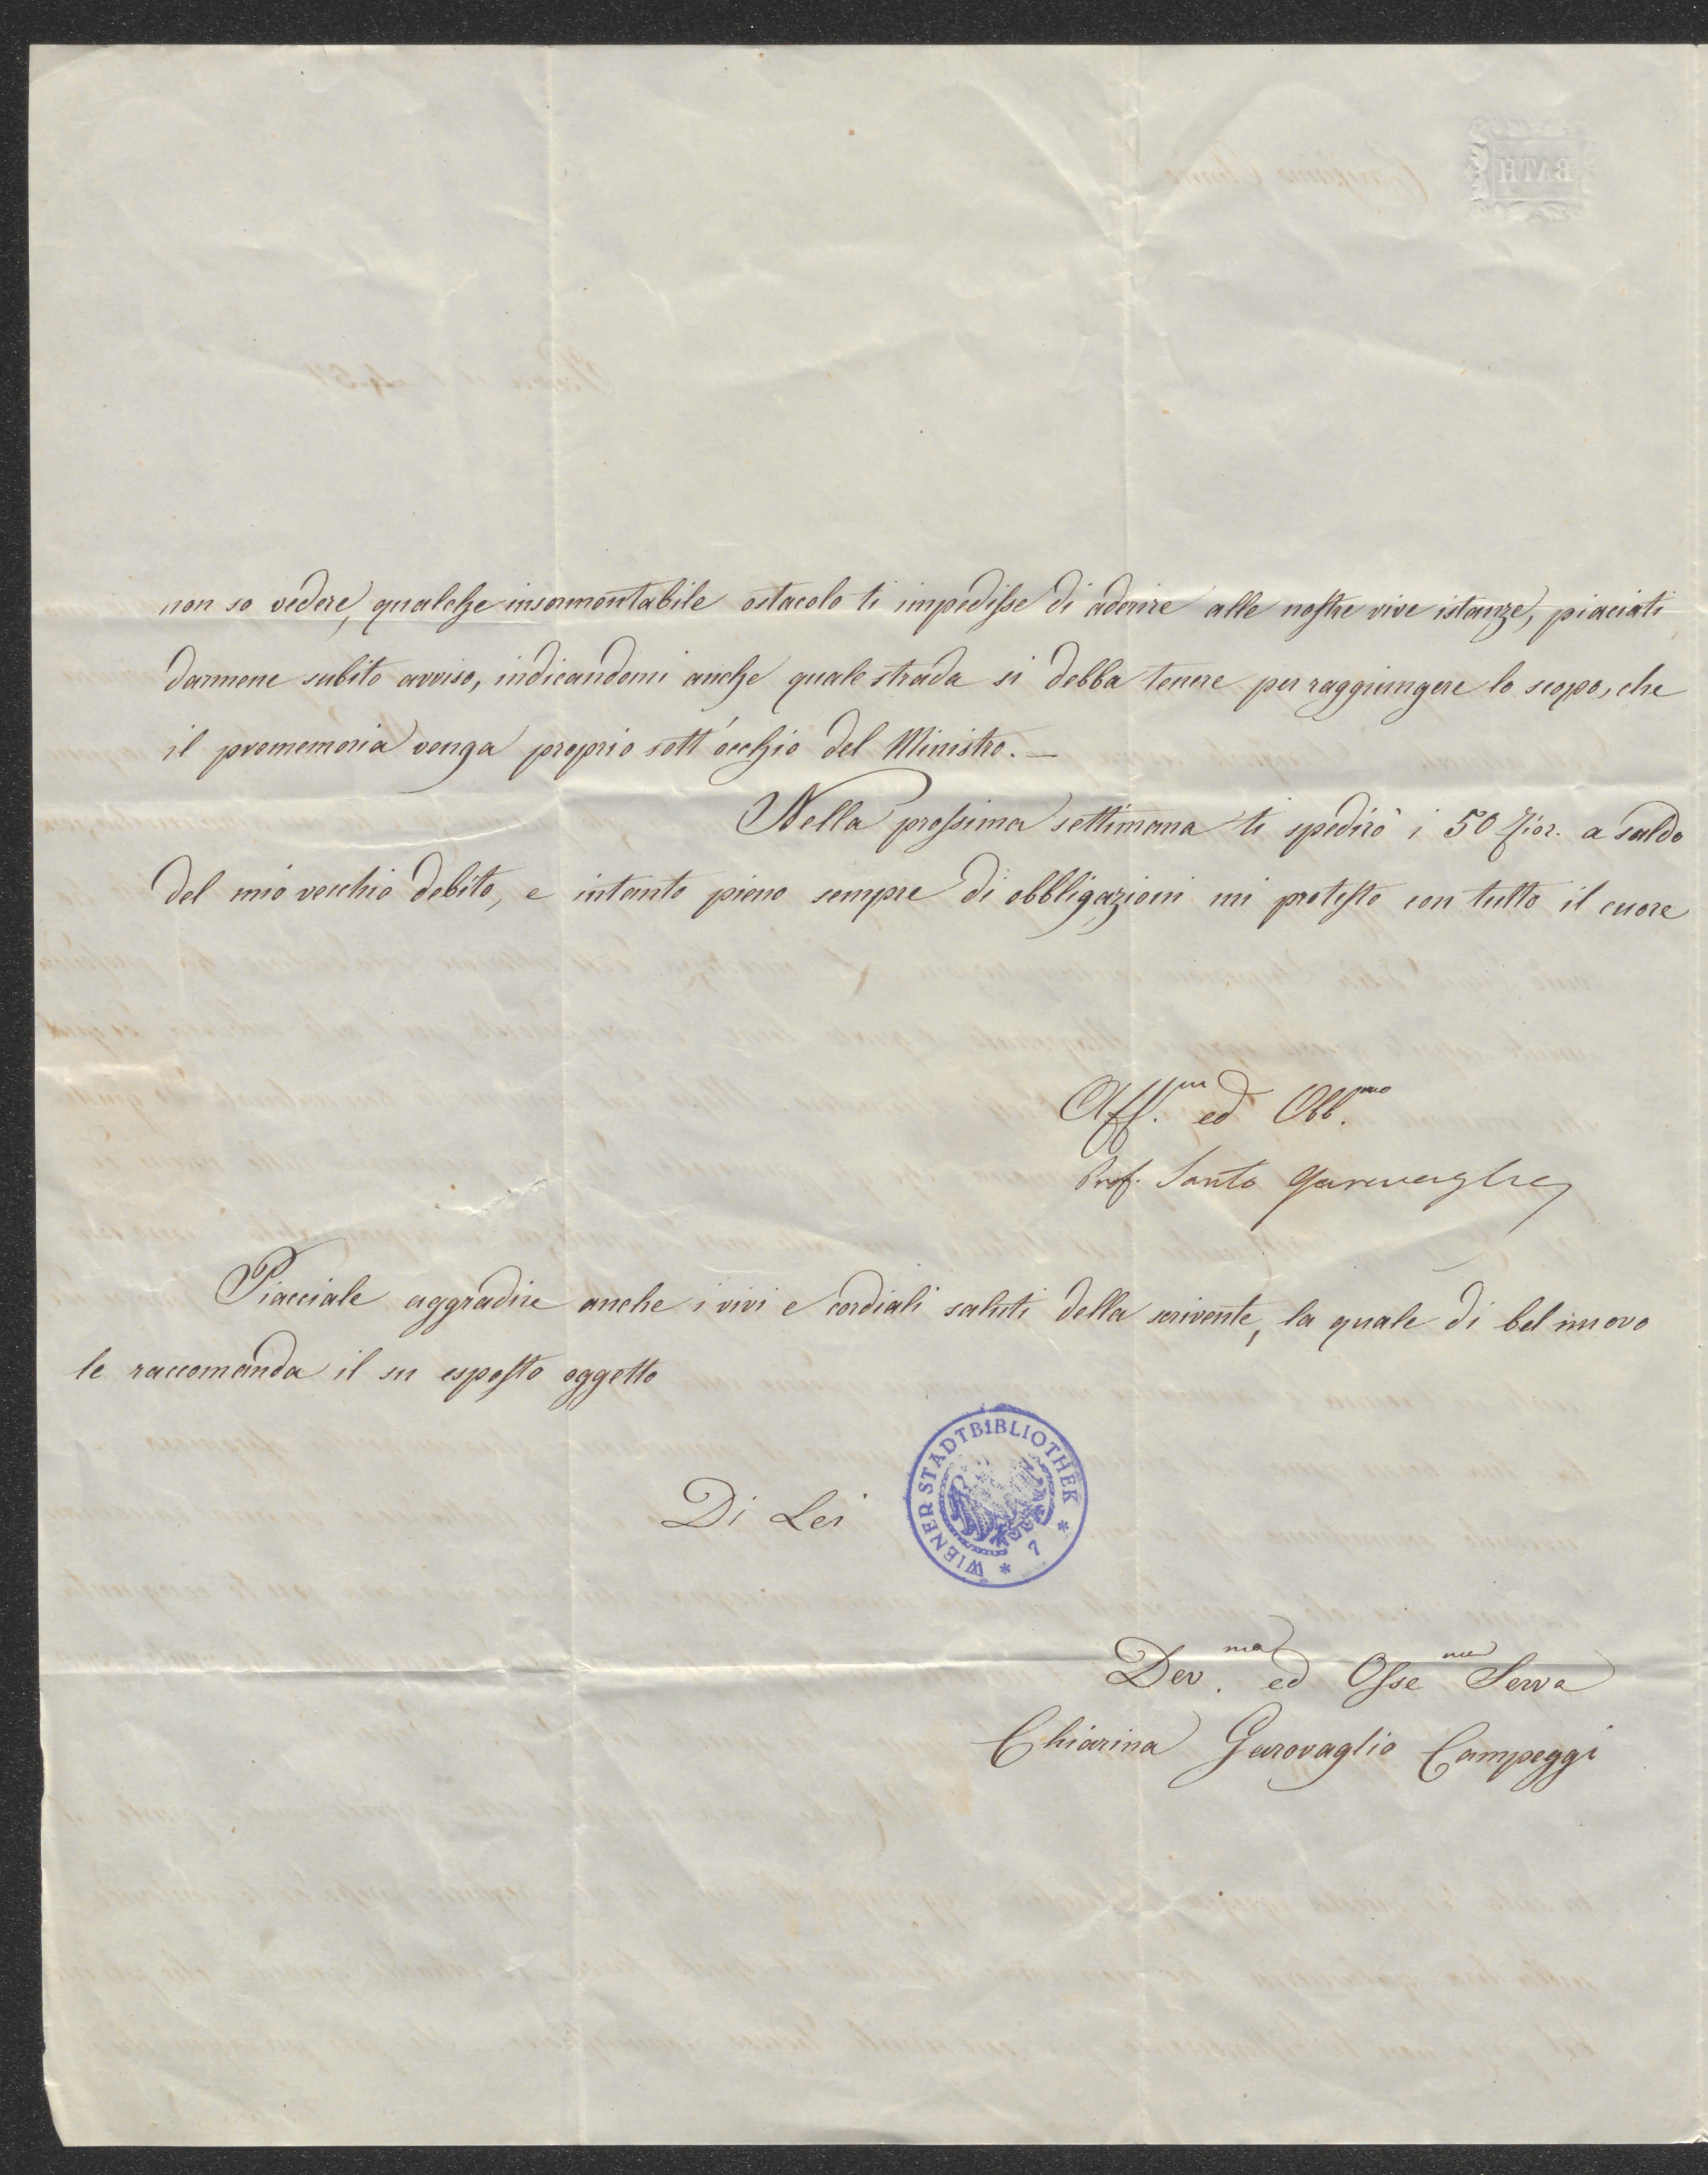 BATH
non so vedere, qualche insormontabile ostacolo ti impedisse di aderire alle nostre vive istanze, piaciati
darmene subito avviso, indicandomi anche quale strada si debba tenere per raggiungere lo scopo, che
il promemoria venga proprio sott'occhio del Ministro. —
Nella prossima settimana ti spedirò i 50 fior. a saldo
del mio vecchio debito, e intanto pieno sempre di obbligazioni mi protesto con tutto il cuore
Aff.mo ed Obb.mo
Prof. Santo Garovaglio
Piacciale aggradire anche i vivi e cordiali saluti della scrivente, la quale di bel nuovo
le raccomanda il su esposto oggetto
Di Lei
WIENER STADTBIBLIOTHEK * 7 *
Dev.ma ed Osse.ma Serva
Chiarina Garovaglio Campeggi